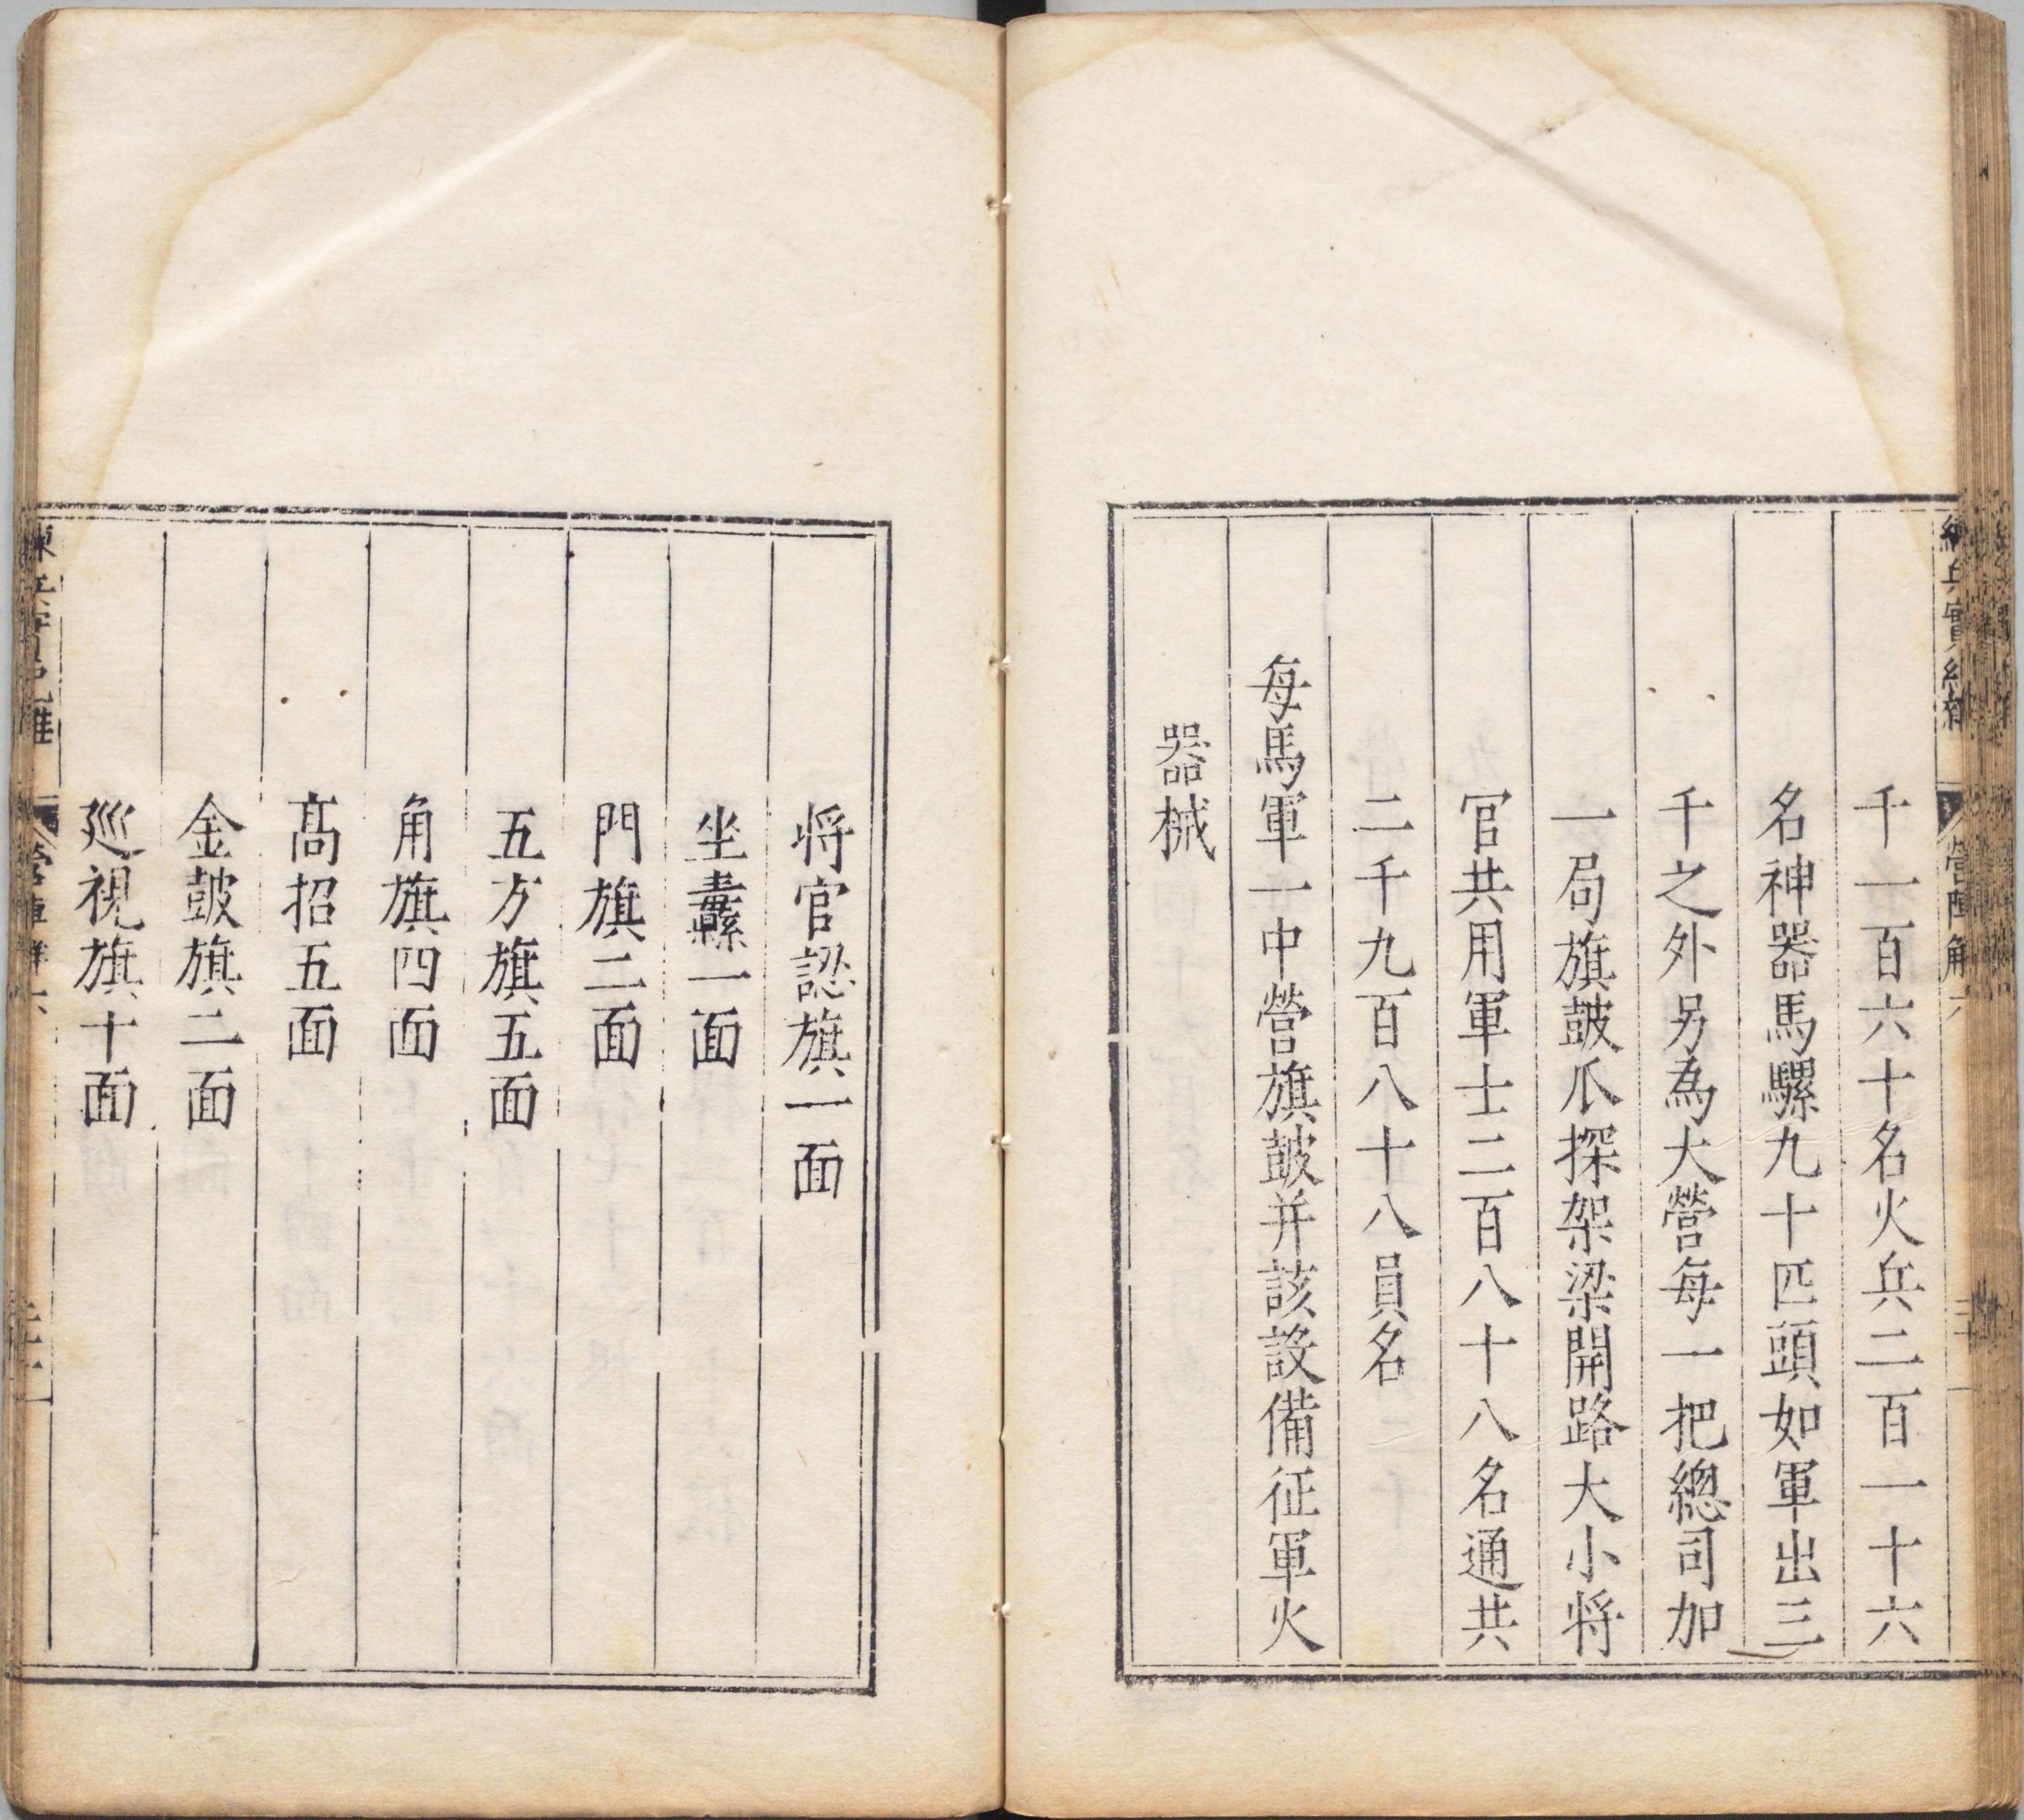 千一百六十名火兵二百一十六
名神器馬騾九十匹頭如軍出三
千之外另為大營每一把總司加
一局旗皷爪探架梁開路大小将
官共用軍士二百八十八名通共
二千九百八十八員名
每馬軍一中營旗皷并該設備征軍火
器械
将官認旗一面
坐纛一面
門旗二面
五方旗五面
角旗四面
高招五面
金皷旗二面
廵視旗十面